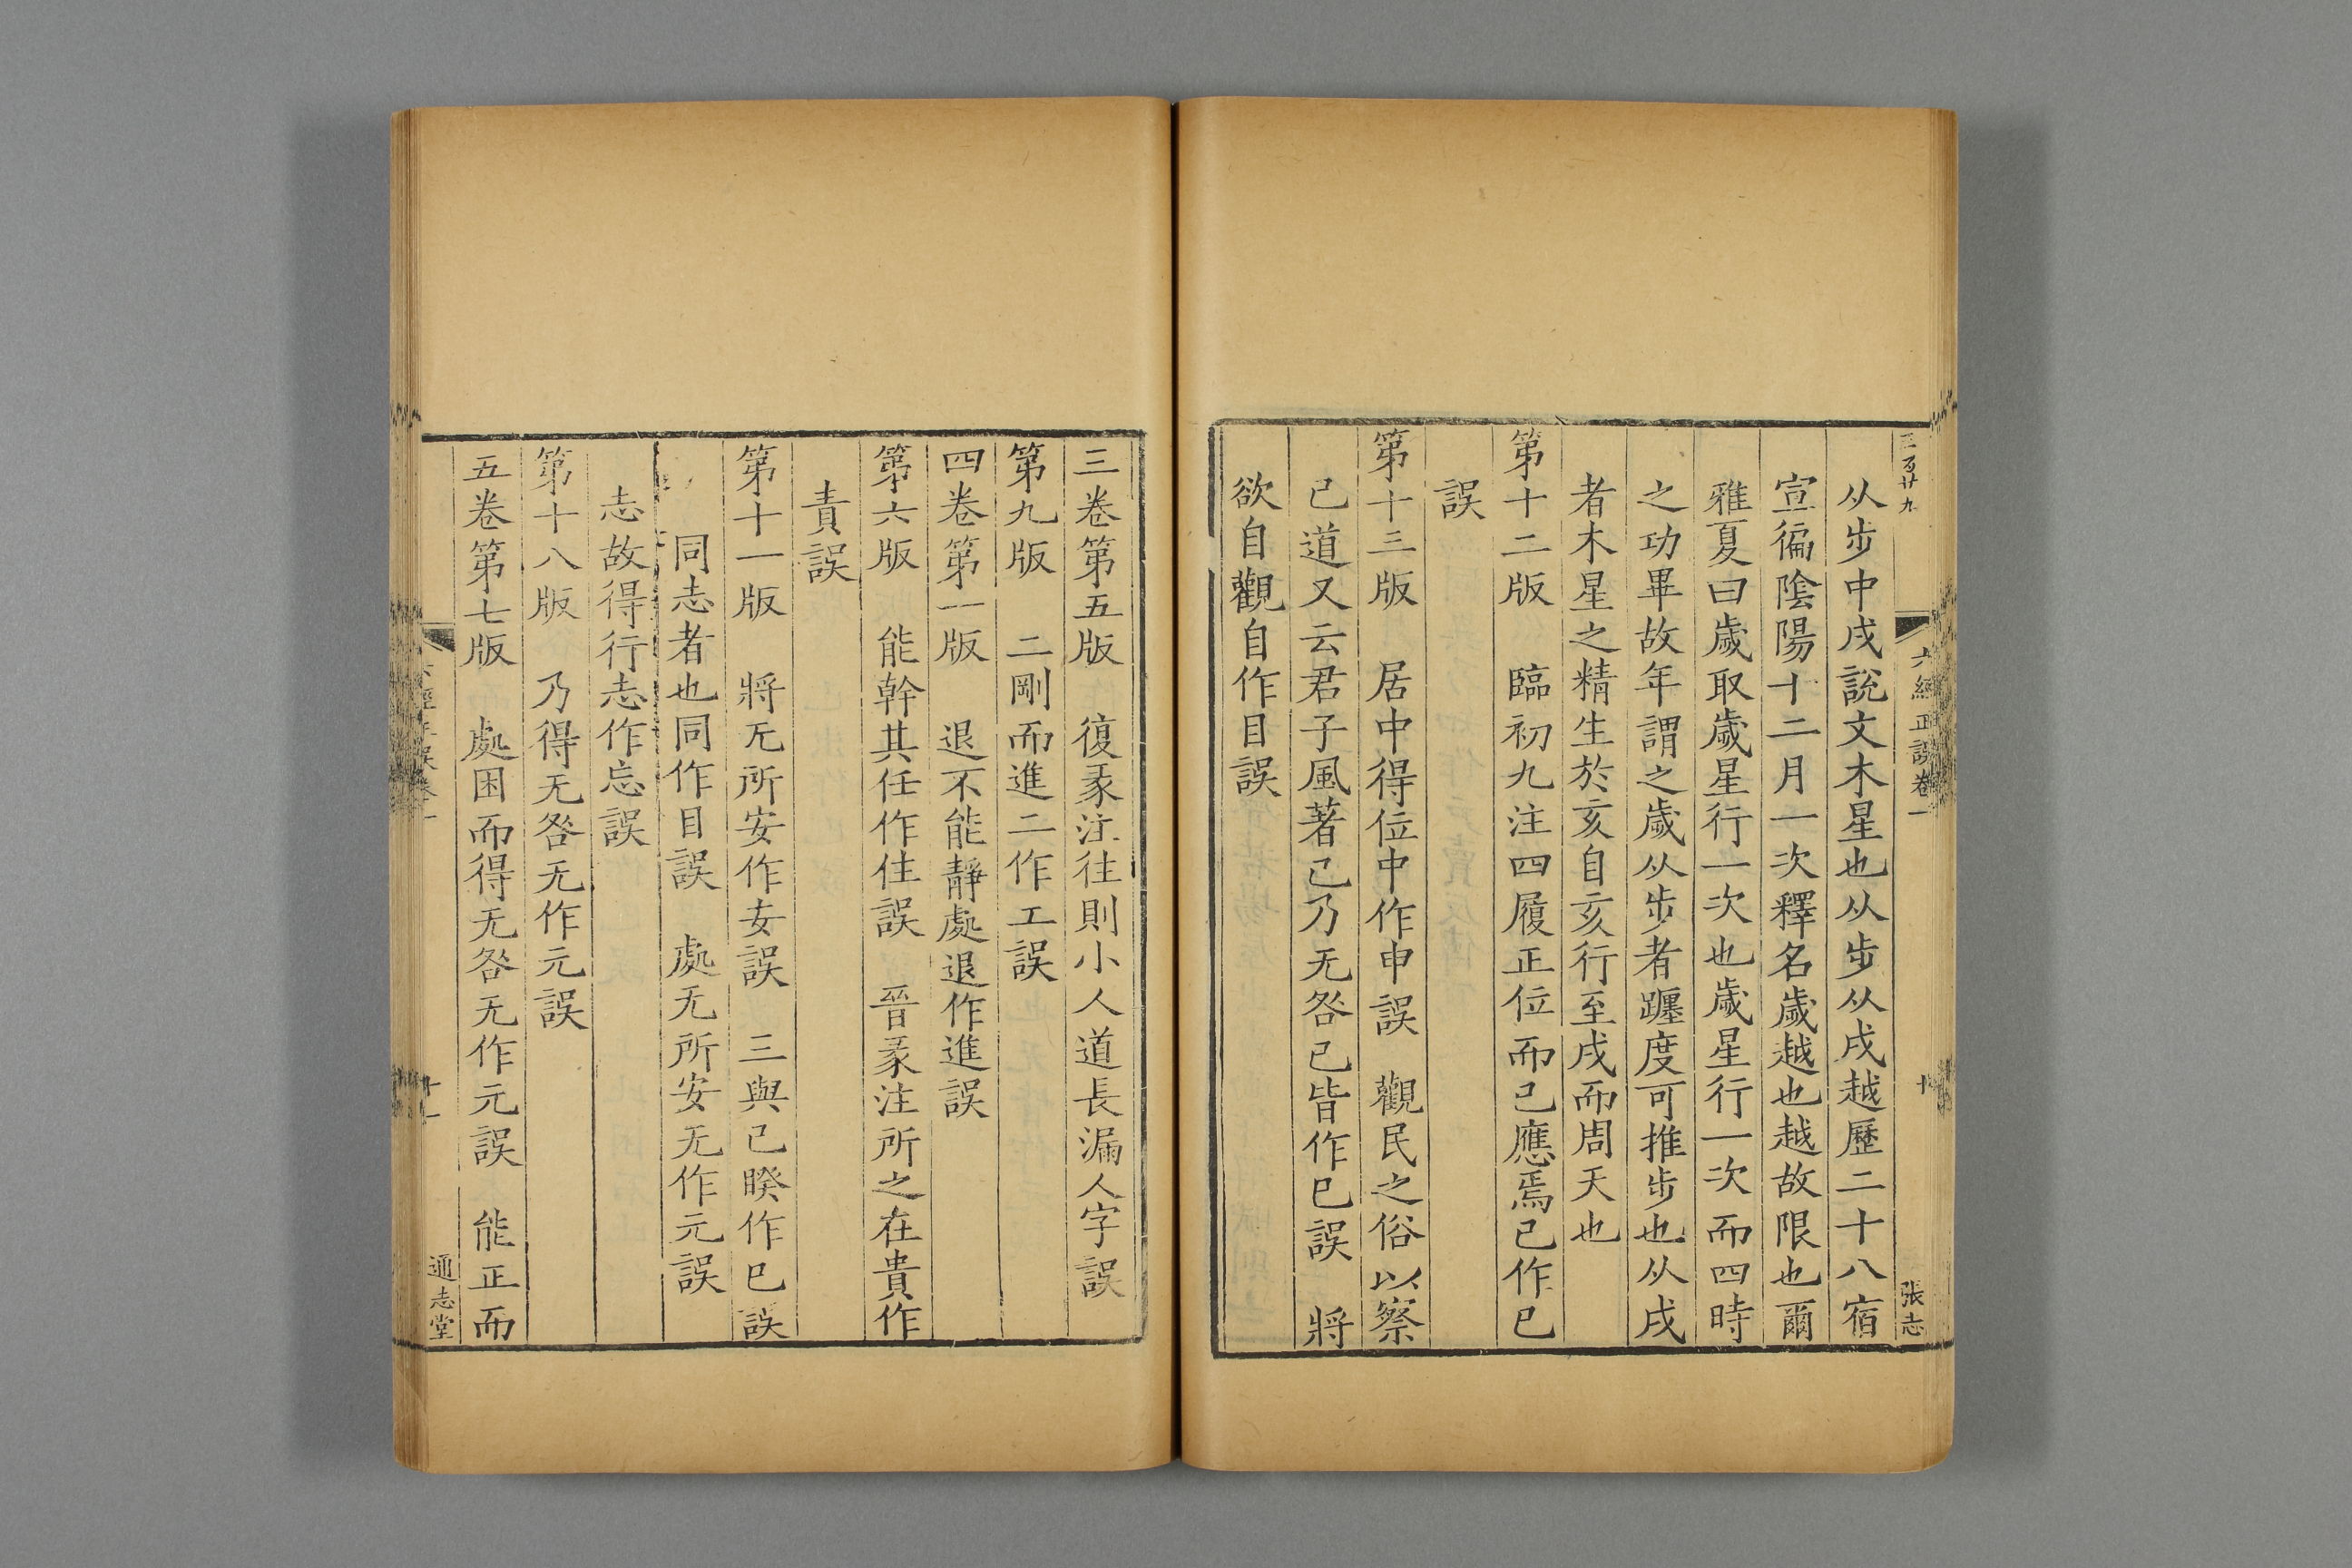 三百廿九
六經正誤卷一
十
張志
从步中戌說文木星也从步从戌越歷二十八宿
宣徧陰陽十二月一次釋名歲越也越故限也爾
雅夏曰歲取歲星行一次也歲星行一次而四時
之功畢故年謂之歲从步者躔度可推步也从戌
者木星之精生於亥自亥行至戌而周天也
第十二版 臨初九注四履正位而已應焉已作巳
誤
第十三版 居中得位中作申誤 觀民之俗以察
己道又云君子風著己乃无咎己皆作巳誤 將
欲自觀自作目誤
三卷第五版 復彖注往則小人道長漏人字誤
第九版 二剛而進二作工誤
四卷第一版 退不能靜處退作進誤
第六版 能幹其任作住誤 晉彖注所之在貴作
責誤
第十一版 將无所安作妄誤 三與己睽作巳誤
同志者也同作目誤 處无所安无作元誤
志故得行志作忘誤
第十八版 乃得无咎无作元誤
五卷第七版 處困而得无咎无作元誤 能正而
十一
通志堂